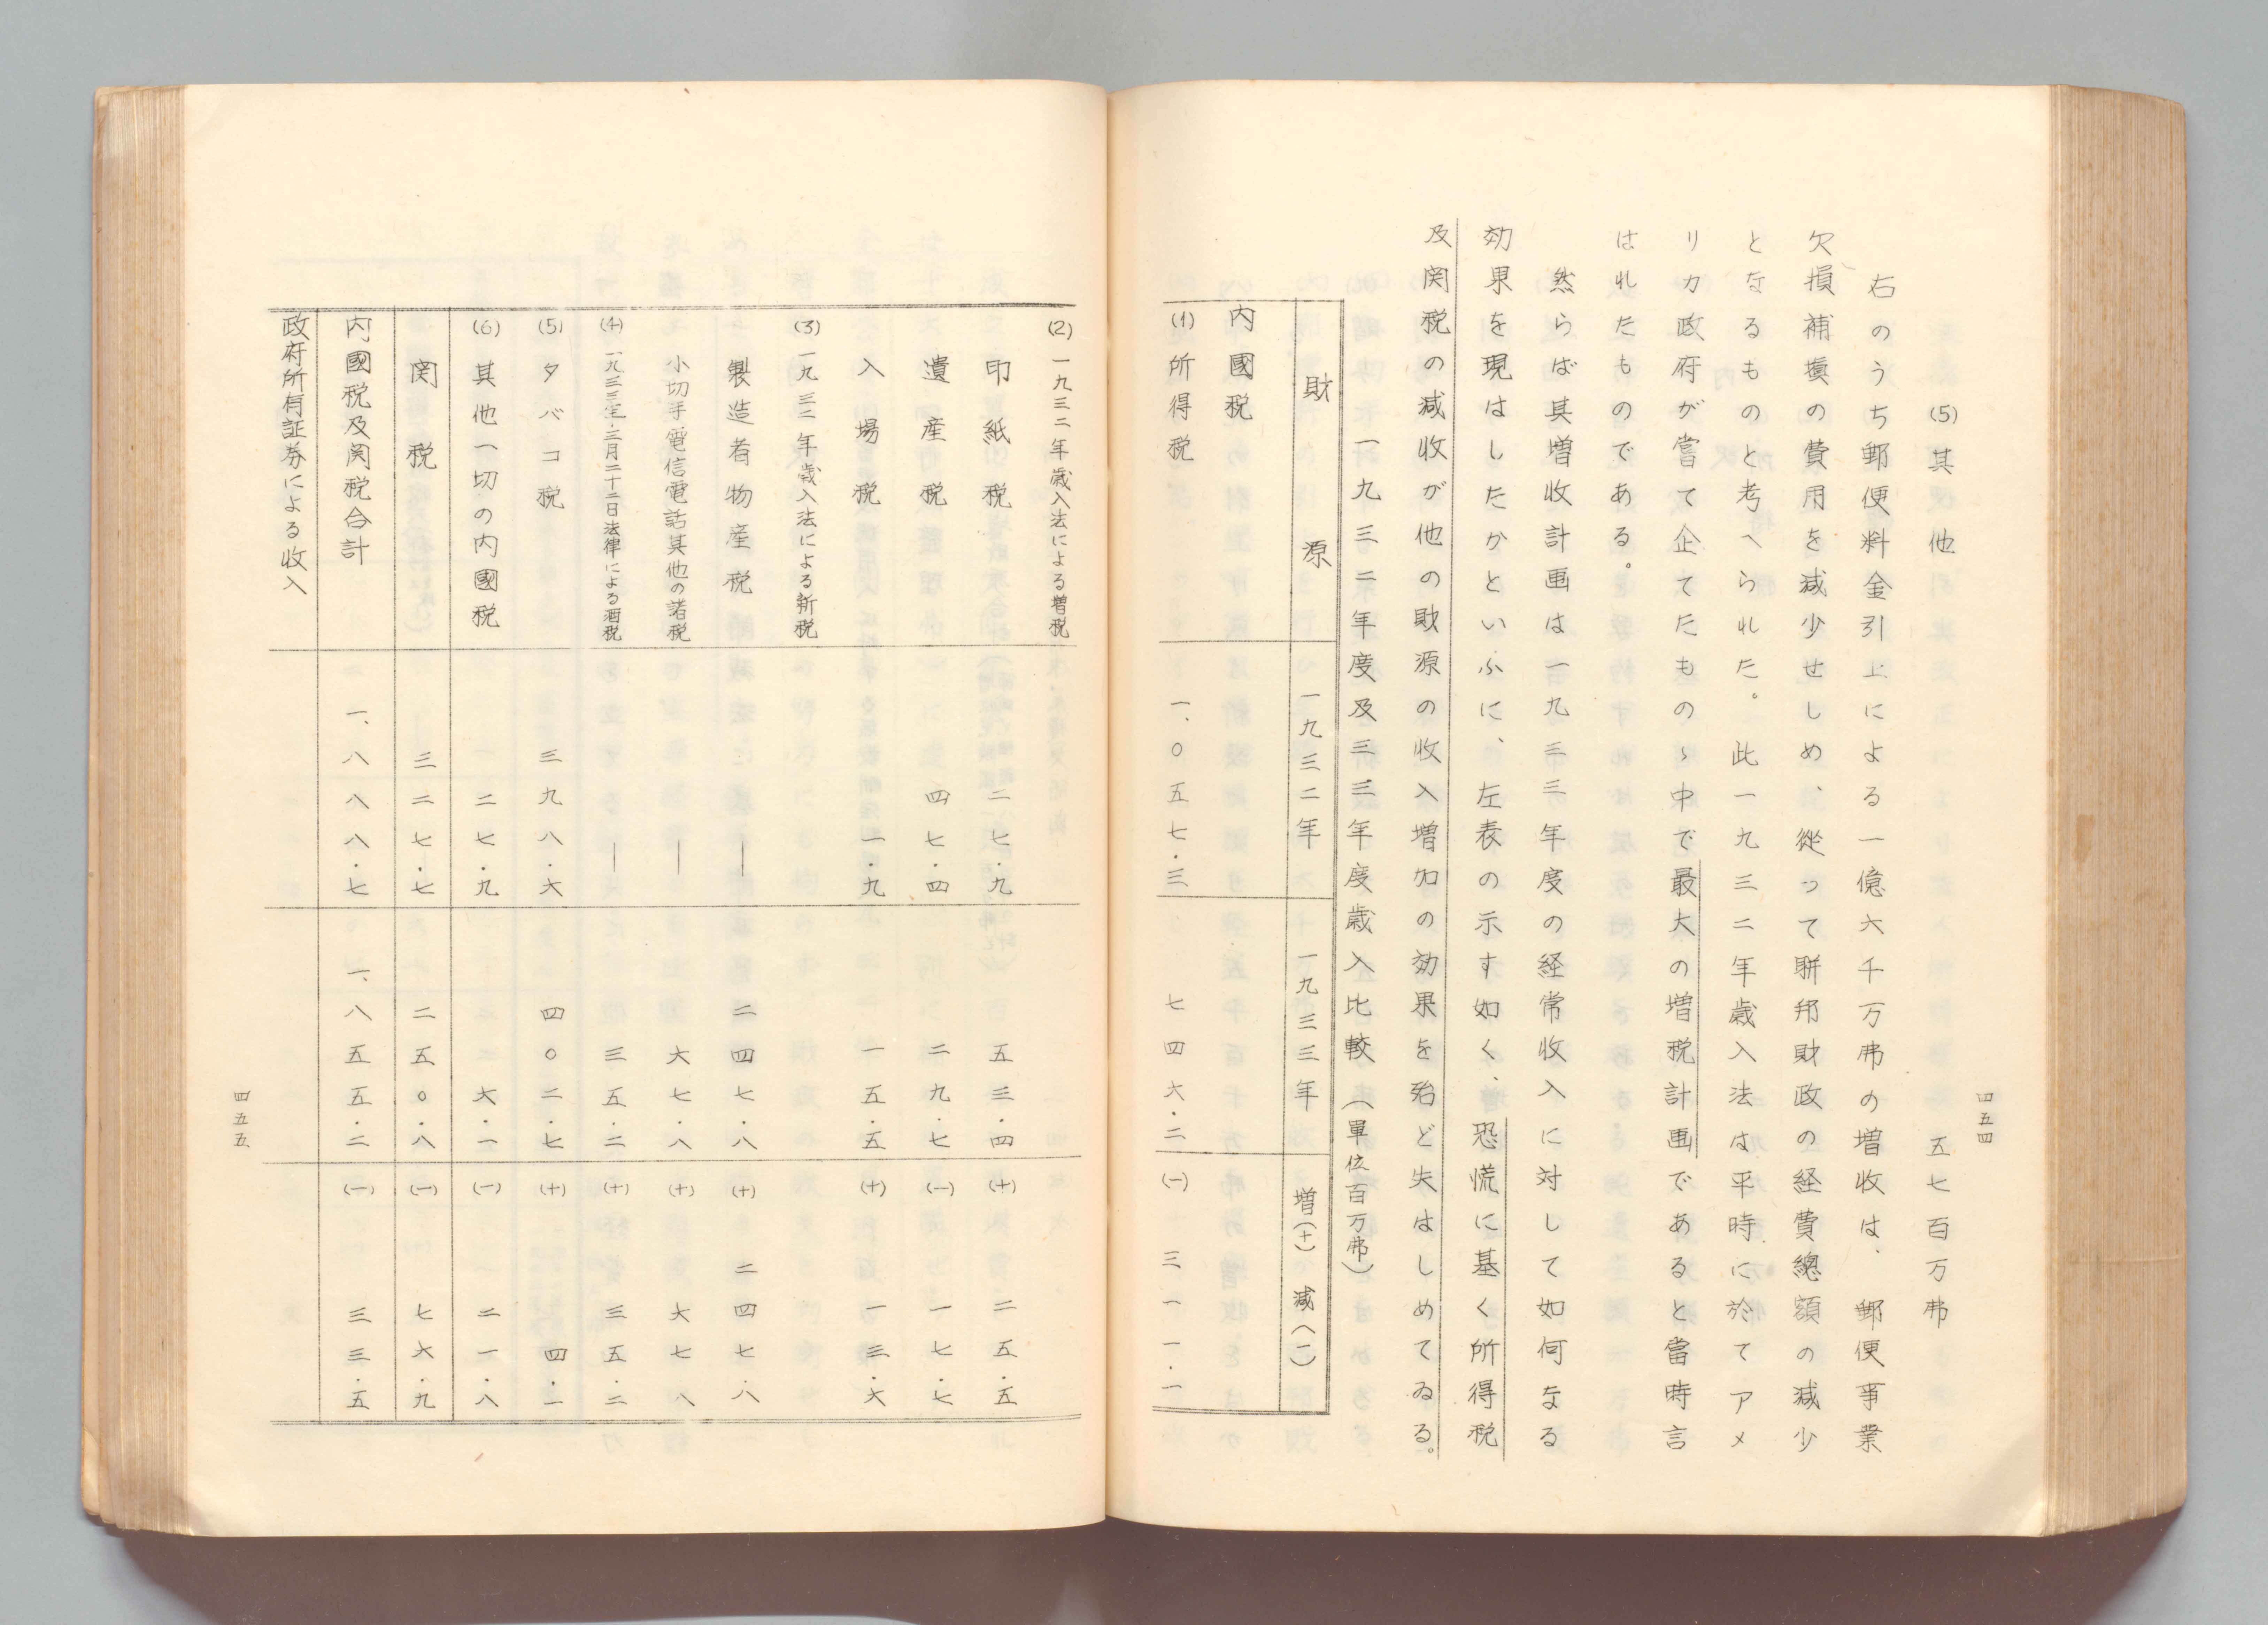 四五四
(5) 其他 五七百万弗
右のうち郵便料金引上による一億六千万弗の増收は、郵便事業
欠損補塡の費用を減少せしめ、從って聯邦財政の経費總額の減少
となるものと考へられた。此一九三二年歳入法は平時に於てアメ
リカ政府が嘗て企てたものゝ中で最大の増税計画であると當時言
はれたものである。
然らば其増收計画は一九三三年度の経常收入に対して如何なる
効果を現はしたかといふに、左表の示す如く、恐慌に基く所得税
及関税の減收が他の財源の收入増加の効果を殆ど失はしめてゐる。
一九三二年度及三三年度歳入比較(單位百万弗)
財源 一九三二年 一九三三年 増(十)減(一)
内國税
(1) 所得税 一、〇五七・三 七四六・二 (一) 三一一・一
(2) 一九三二年歳入法による増税
印紙税 二七・九 五三・四 (十) 二五・五
遺産税 四七・四 二九・七 (一) 一七・七
入場税 一・九 一五・五 (十) 一三・六
(3) 一九三二年歳入法による新税
製造者物産税 — 二四七・八 (十) 二四七・八
小切手電信電話其他の諸税 — 六七・八 (十) 六七八
(4) 一九三三年三月二十二日法律による酒税 — 三五・二 (十) 三五・二
(5) タバコ税 三九八・六 四〇二・七 (十) 四・一
(6) 其他一切の内國税 二七・九 六・一 (一) 二一・八
関税 三二七・七 二五〇・八 (一) 七六・九
内國税及関税合計 一、八八八・七 一、八五五・二 (一) 三三・五
政府所有証券による收入
四五五